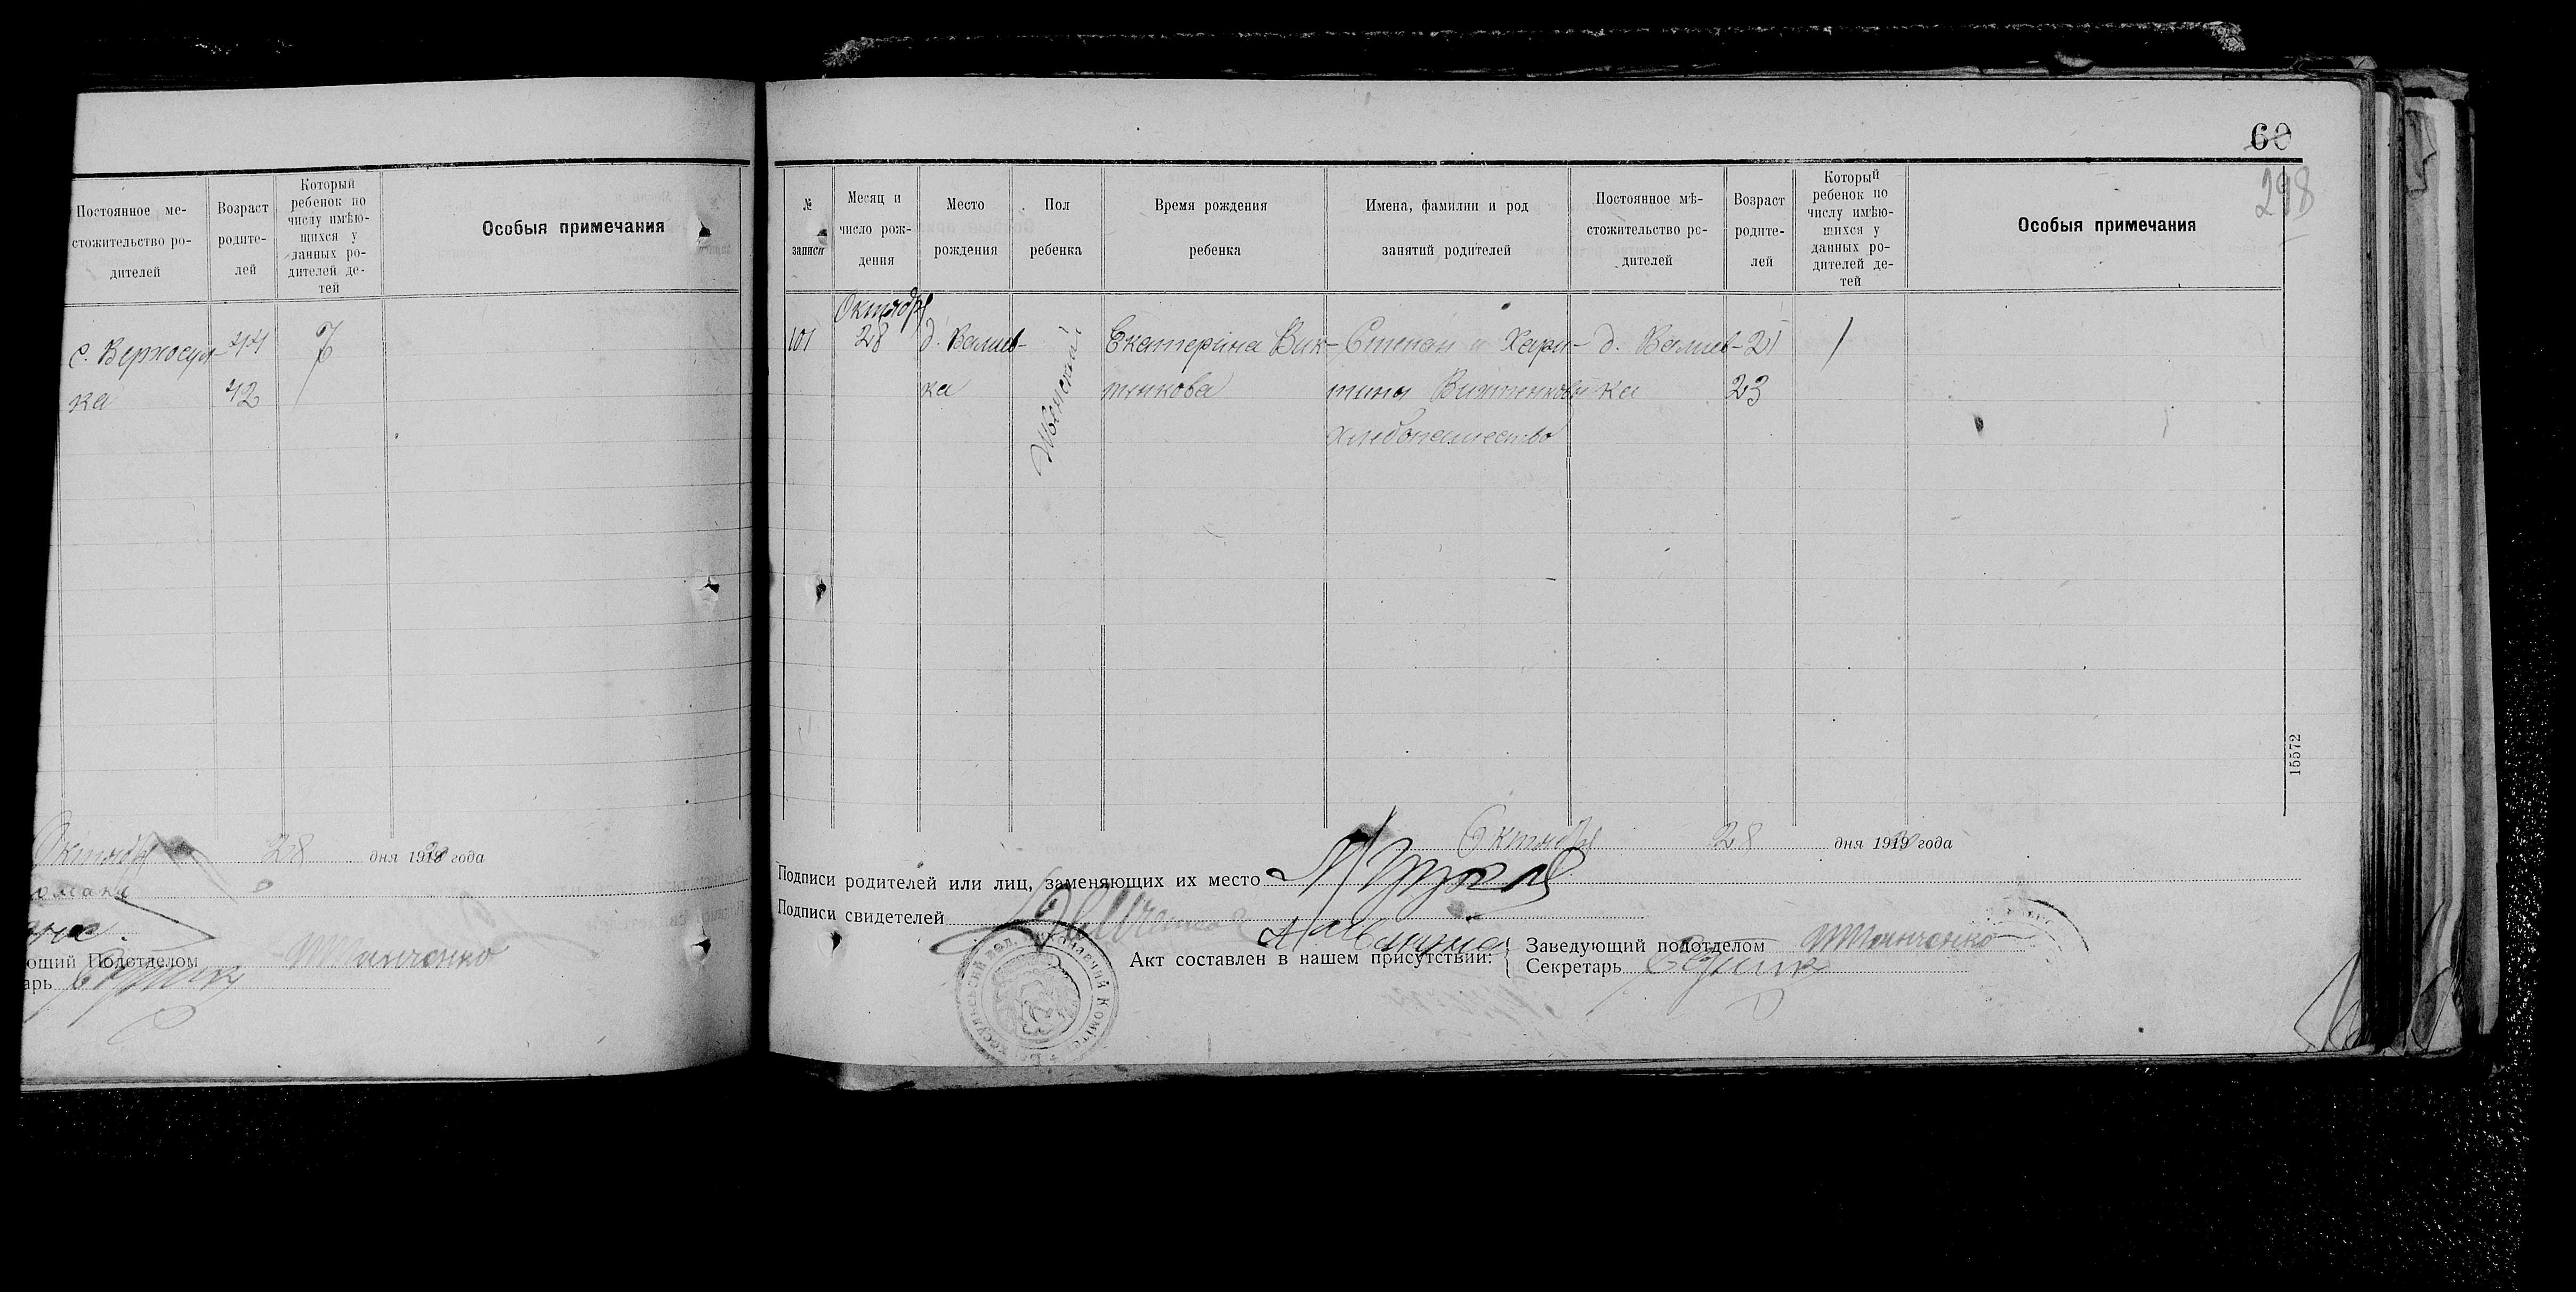 Постоянное ме-
стожительство ро-
дителей
Возраст
родите-
лей
Который
ребенок по
числу имѣю-
щихся у
данных ро-
дителей де-
тей
Особыя примечания
с. Верхосул-
ка
44
42
7
Октября 28 дня 1919 года
Подотделом
60
298
№
записи
Месяц и
число рож-
дения
Место
рождения
Пол
ребенка
Время рождения
ребенка
Имена, фамилии и род
занятий родителей
Постоянное мѣ-
стожительство ро-
дителей
Возраст
родите-
лей
Который
ребенок по
числу имѣю-
щихся у
данных ро-
дителей де-
тей
Особыя примечания
101
Октября
28
д. Валиев-
ка
Женский
Екатерина Вих-
тенкова
Степан и Хари-
тина
хлебопашество
д. Валиев-
ка
21
23
1
15572
Октября 28 дня 1919 года
Подписи родителей или лиц, заменяющих их место
Подписи свидетелей
Акт составлен в нашем присутствии:
Заведующий подотделом
Секретарь